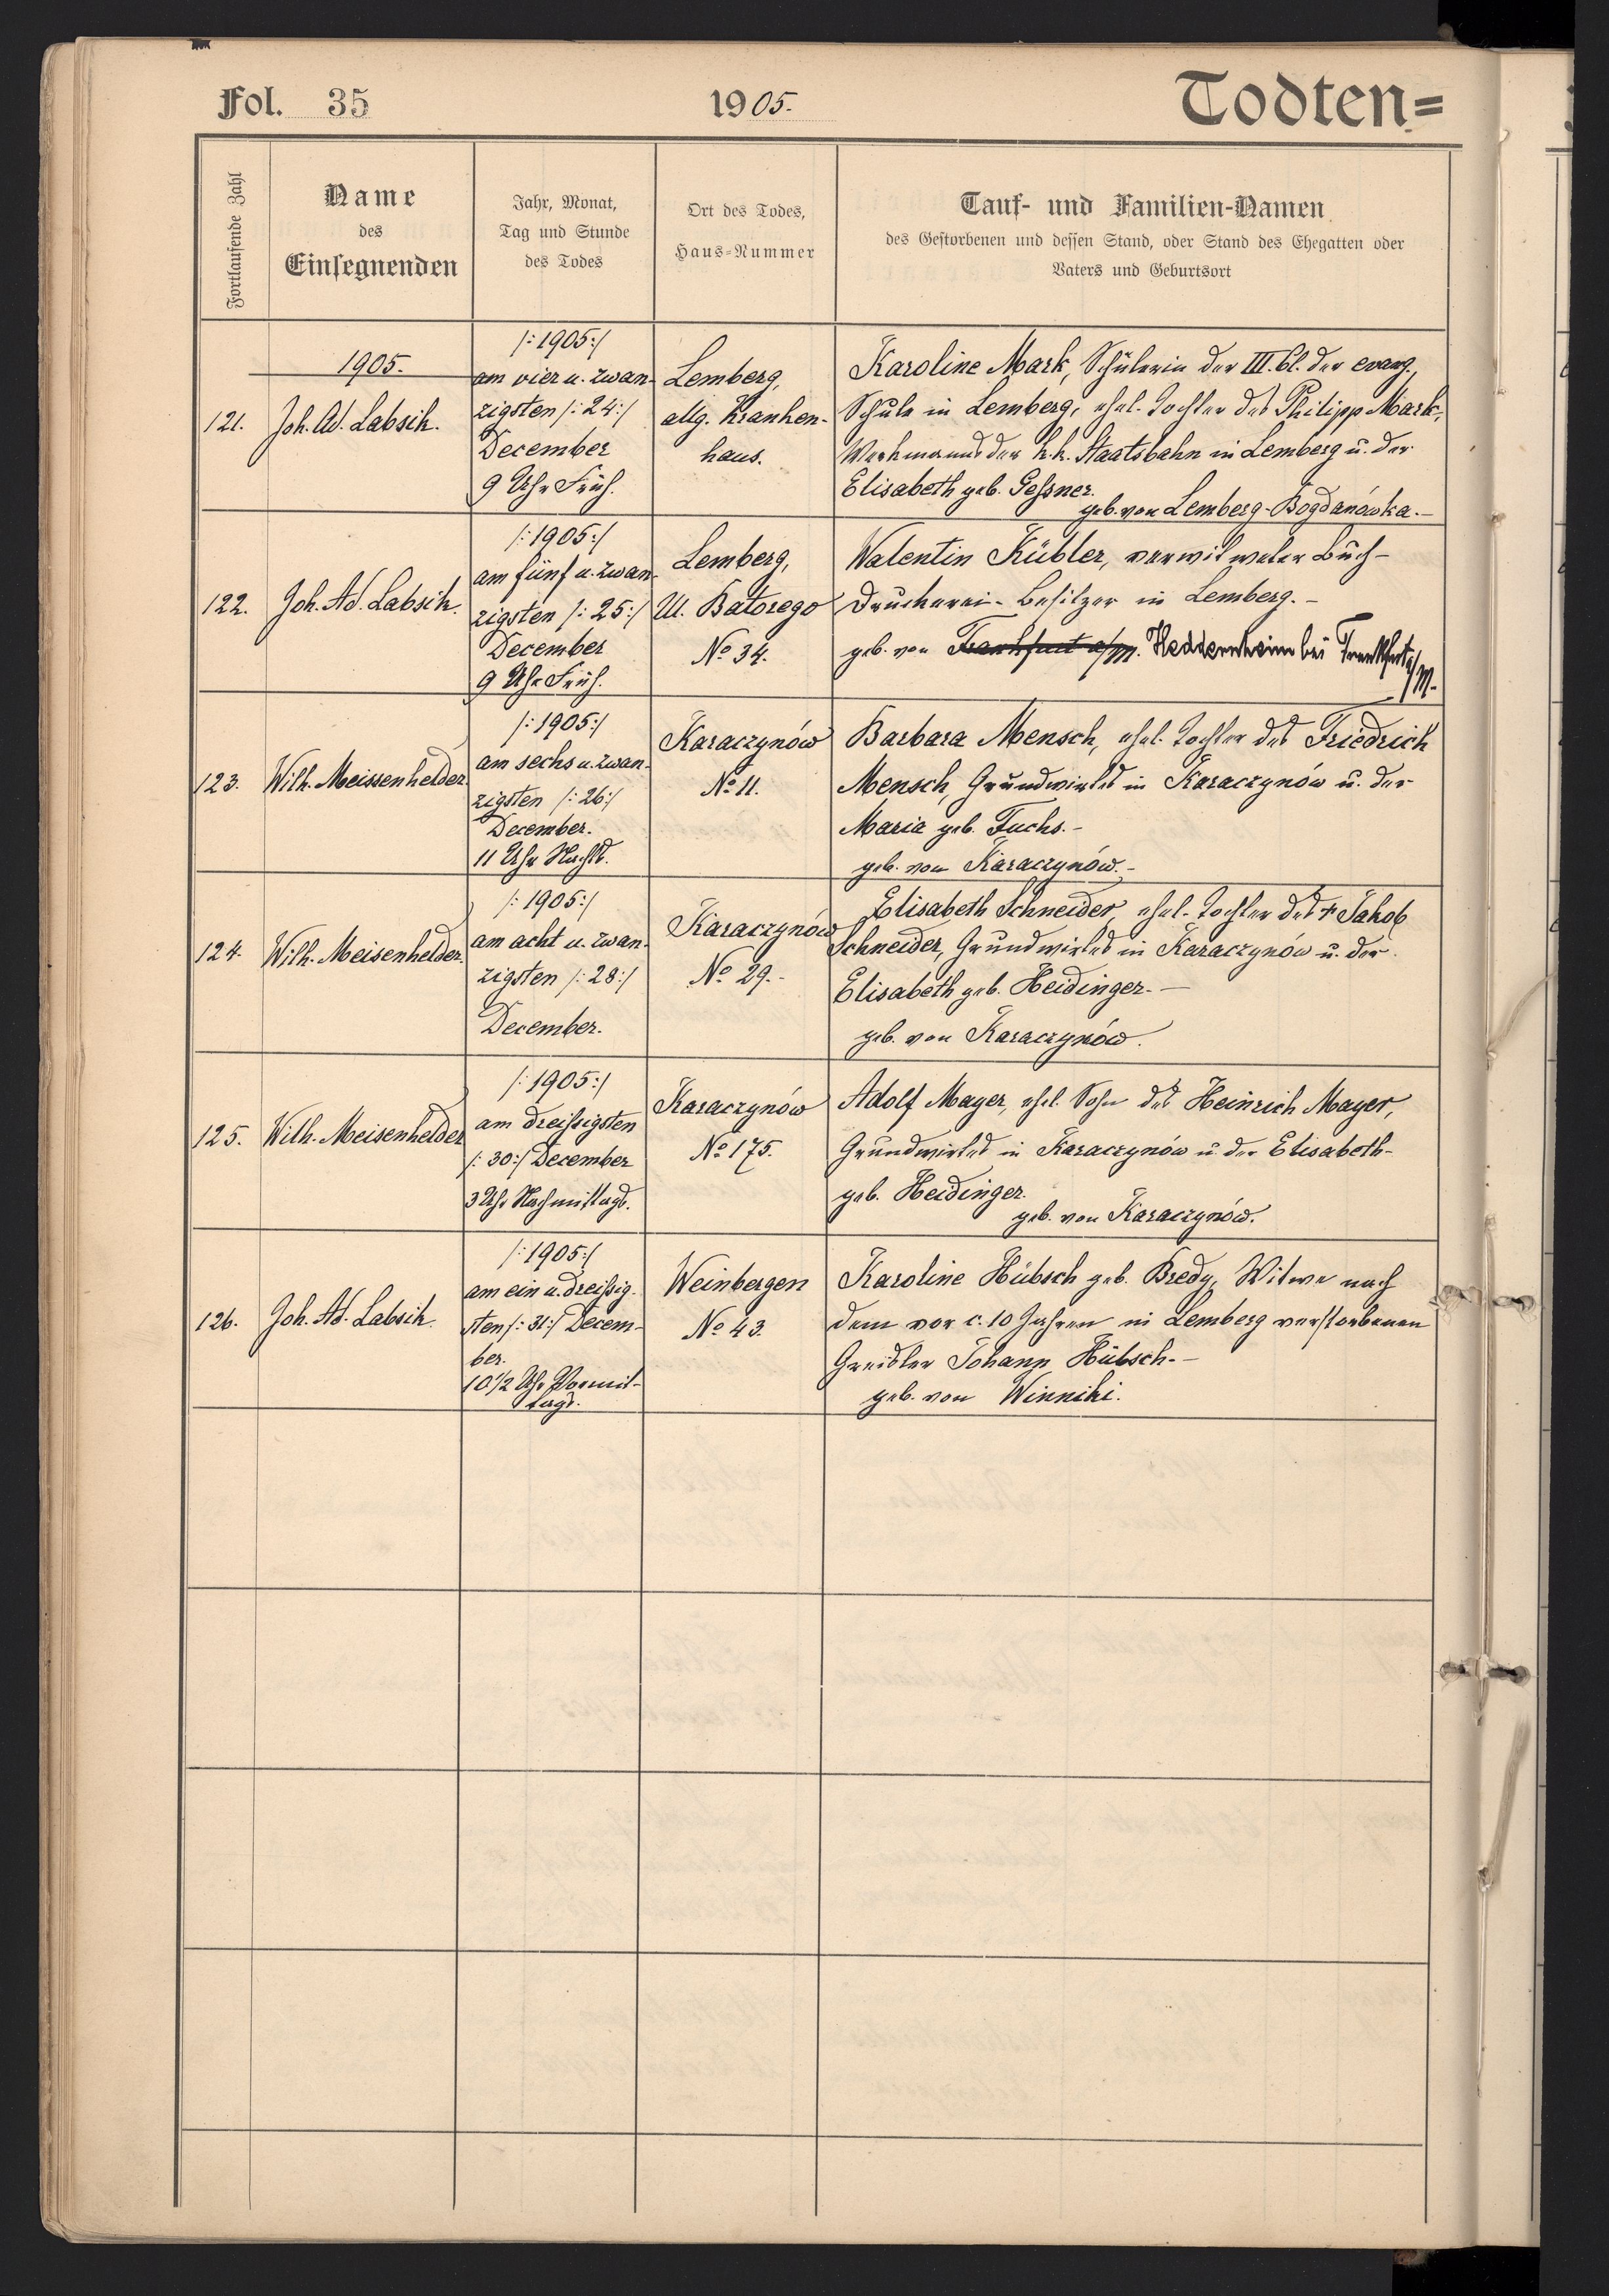 Fol. 35
1905.
Todten=
Fortlaufende Zahl
Name
des
Einsegnenden
Jahr, Monat,
Tag und Stunde
des Todes
Ort des Todes,
Haus=Nummer
Tauf- und Familien-Namen
des Gestorbenen und dessen Stand, oder Stand des Ehegatten oder
Vaters und Geburtsort
1905.
121.
Joh. Ad. Labsik.
/:1905:/
am vier u. zwan-
zigsten /:24:/
December
9 Uhr Früh.
Lemberg,
allg. Kranken-
haus.
Karoline Mark, Schülerin der III. Cl. der evang.
Schule in Lemberg, ehel. Tochter des Philipp Mark,
Werkmanns der k.k. Staatsbahn in Lemberg u. der
Elisabeth geb. Gessner.
geb. von Lemberg-Bogdanówka.-
122.
Joh. Ad. Labsik.
/:1905:/
am fünf u. zwan-
zigsten /:25:/
December
9 Uhr Früh.
Lemberg,
Ul. Batorego
No 34.
Walentin Kübler, verwitweter Buch-
druckerei-Besitzer in Lemberg.-
geb. von Frankfurt a/M. Heddernheim bei Frankfurt a/M.-
123.
Wilh. Meissenhelder.
/:1905:/
am sechs u. zwan-
zigsten /:26:/
December.
11 Uhr Nachts.
Karaczynów
No 11.
Barbara Mensch, ehel. Tochter des Friedrich
Mensch, Grundwirtes in Karaczynów u. der
Maria geb. Fuchs.-
geb. von Karaczynów.-
124.
Wilh. Meisenhelder.
/:1905:/
am acht u. zwan-
zigsten /:28:/
December.
Karaczynów
No 29.-
Elisabeth Schneider, ehel. Tochter des + Jakob
Schneider, Grundwirtes in Karaczynów u. der
Elisabeth geb. Heidinger.-
geb. von Karaczynów.
125.
Wilh. Meisenhelder
/:1905:/
am dreißigsten
/:30:/ December
3 Uhr Nachmittags.
Karaczynów
No 175.
Adolf Mayer, ehel. Sohn des Heinrich Mayer,
Grundwirtes in Karaczynów u. der Elisabeth
geb. Heidinger.
geb. von Karaczynów.
126.
Joh. Ad. Labsik.
/:1905:/
am ein u. dreißig-
sten /:31:/ Decem-
ber.
10 1/2 Uhr Vormit-
tags.
Weinbergen
No 43.
Karoline Hübsch geb. Bredy, Witwe nach
dem vor c. 10 Jahren in Lemberg verstorbenen
Greisler Johann Hübsch.-
geb. von Winniki.